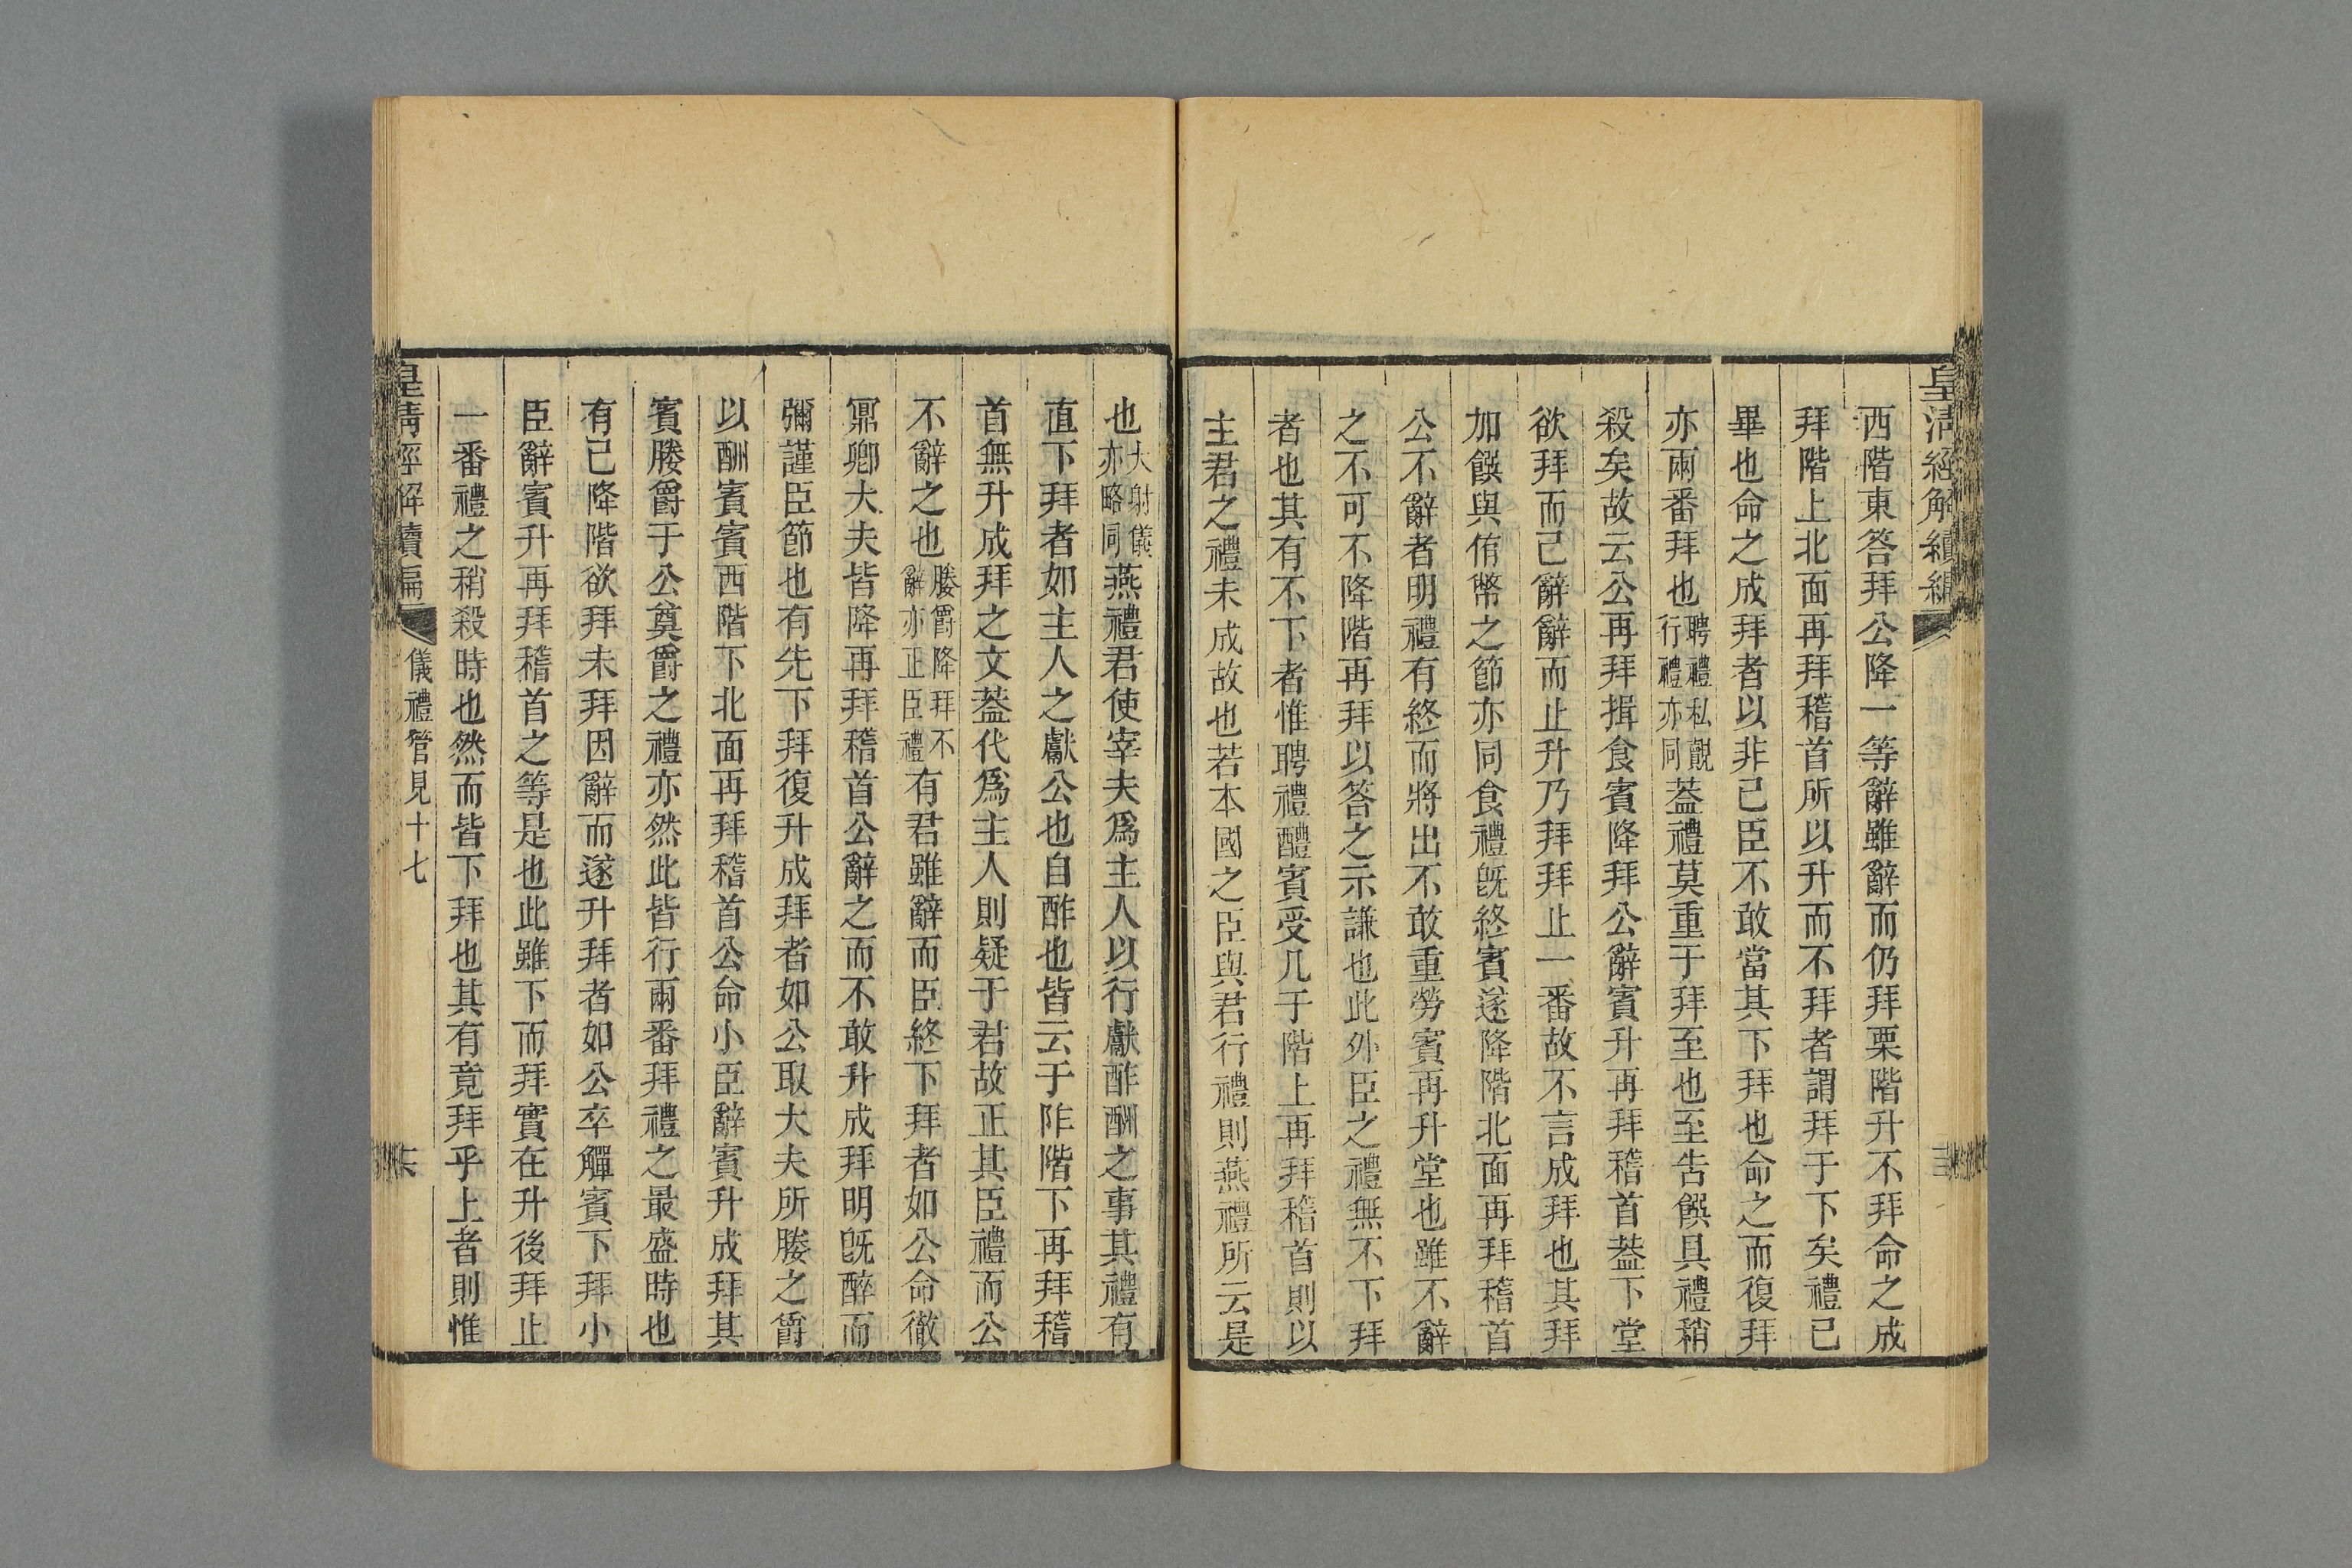 皇清經解續編
西階東答拜公降一等辭雖辭而仍拜栗階升不拜命之成
拜階上北面再拜稽首所以升而不拜者謂拜于下矣禮已
畢也命之成拜者以非己臣不敢當其下拜也命之而復拜
亦兩番拜也聘禮私覿行禮亦同葢禮莫重于拜至也至吿饌具禮稍
殺矣故云公再拜揖食賓降拜公辭賓升再拜稽首葢下堂
欲拜而己辭辭而止升乃拜拜止一番故不言成拜也其拜
加饌與侑幣之節亦同食禮旣終賓遂降階北面再拜稽首
公不辭者明禮有終而將出不敢重勞賓再升堂也雖不辭
之不可不降階再拜以答之示謙也此外臣之禮無不下拜
者也其有不下者惟聘禮醴賓受几于階上再拜稽首則以
主君之禮未成故也若本國之臣與君行禮則燕禮所云是
也大射儀亦略同燕禮君使宰夫爲主人以行獻酢酬之事其禮有
直下拜者如主人之獻公也自酢也皆云于阼階下再拜稽
首無升成拜之文葢代爲主人則疑于君故正其臣禮而公
不辭之也媵爵降拜不辭亦正臣禮有君雖辭而臣終下拜者如公命徹
冪卿大夫皆降再拜稽首公辭之而不敢升成拜明旣醉而
彌謹臣節也有先下拜復升成拜者如公取大夫所媵之爵
以酬賓賓西階下北面再拜稽首公命小臣辭賓升成拜其
賓媵爵于公奠爵之禮亦然此皆行兩番拜禮之最盛時也
有已降階欲拜未拜因辭而遂升拜者如公卒觶賓下拜小
臣辭賓升再拜稽首之等是也此雖下而拜實在升後拜止
一番禮之稍殺時也然而皆下拜也其有竟拜乎上者則惟
皇清經解續編
儀禮管見十七